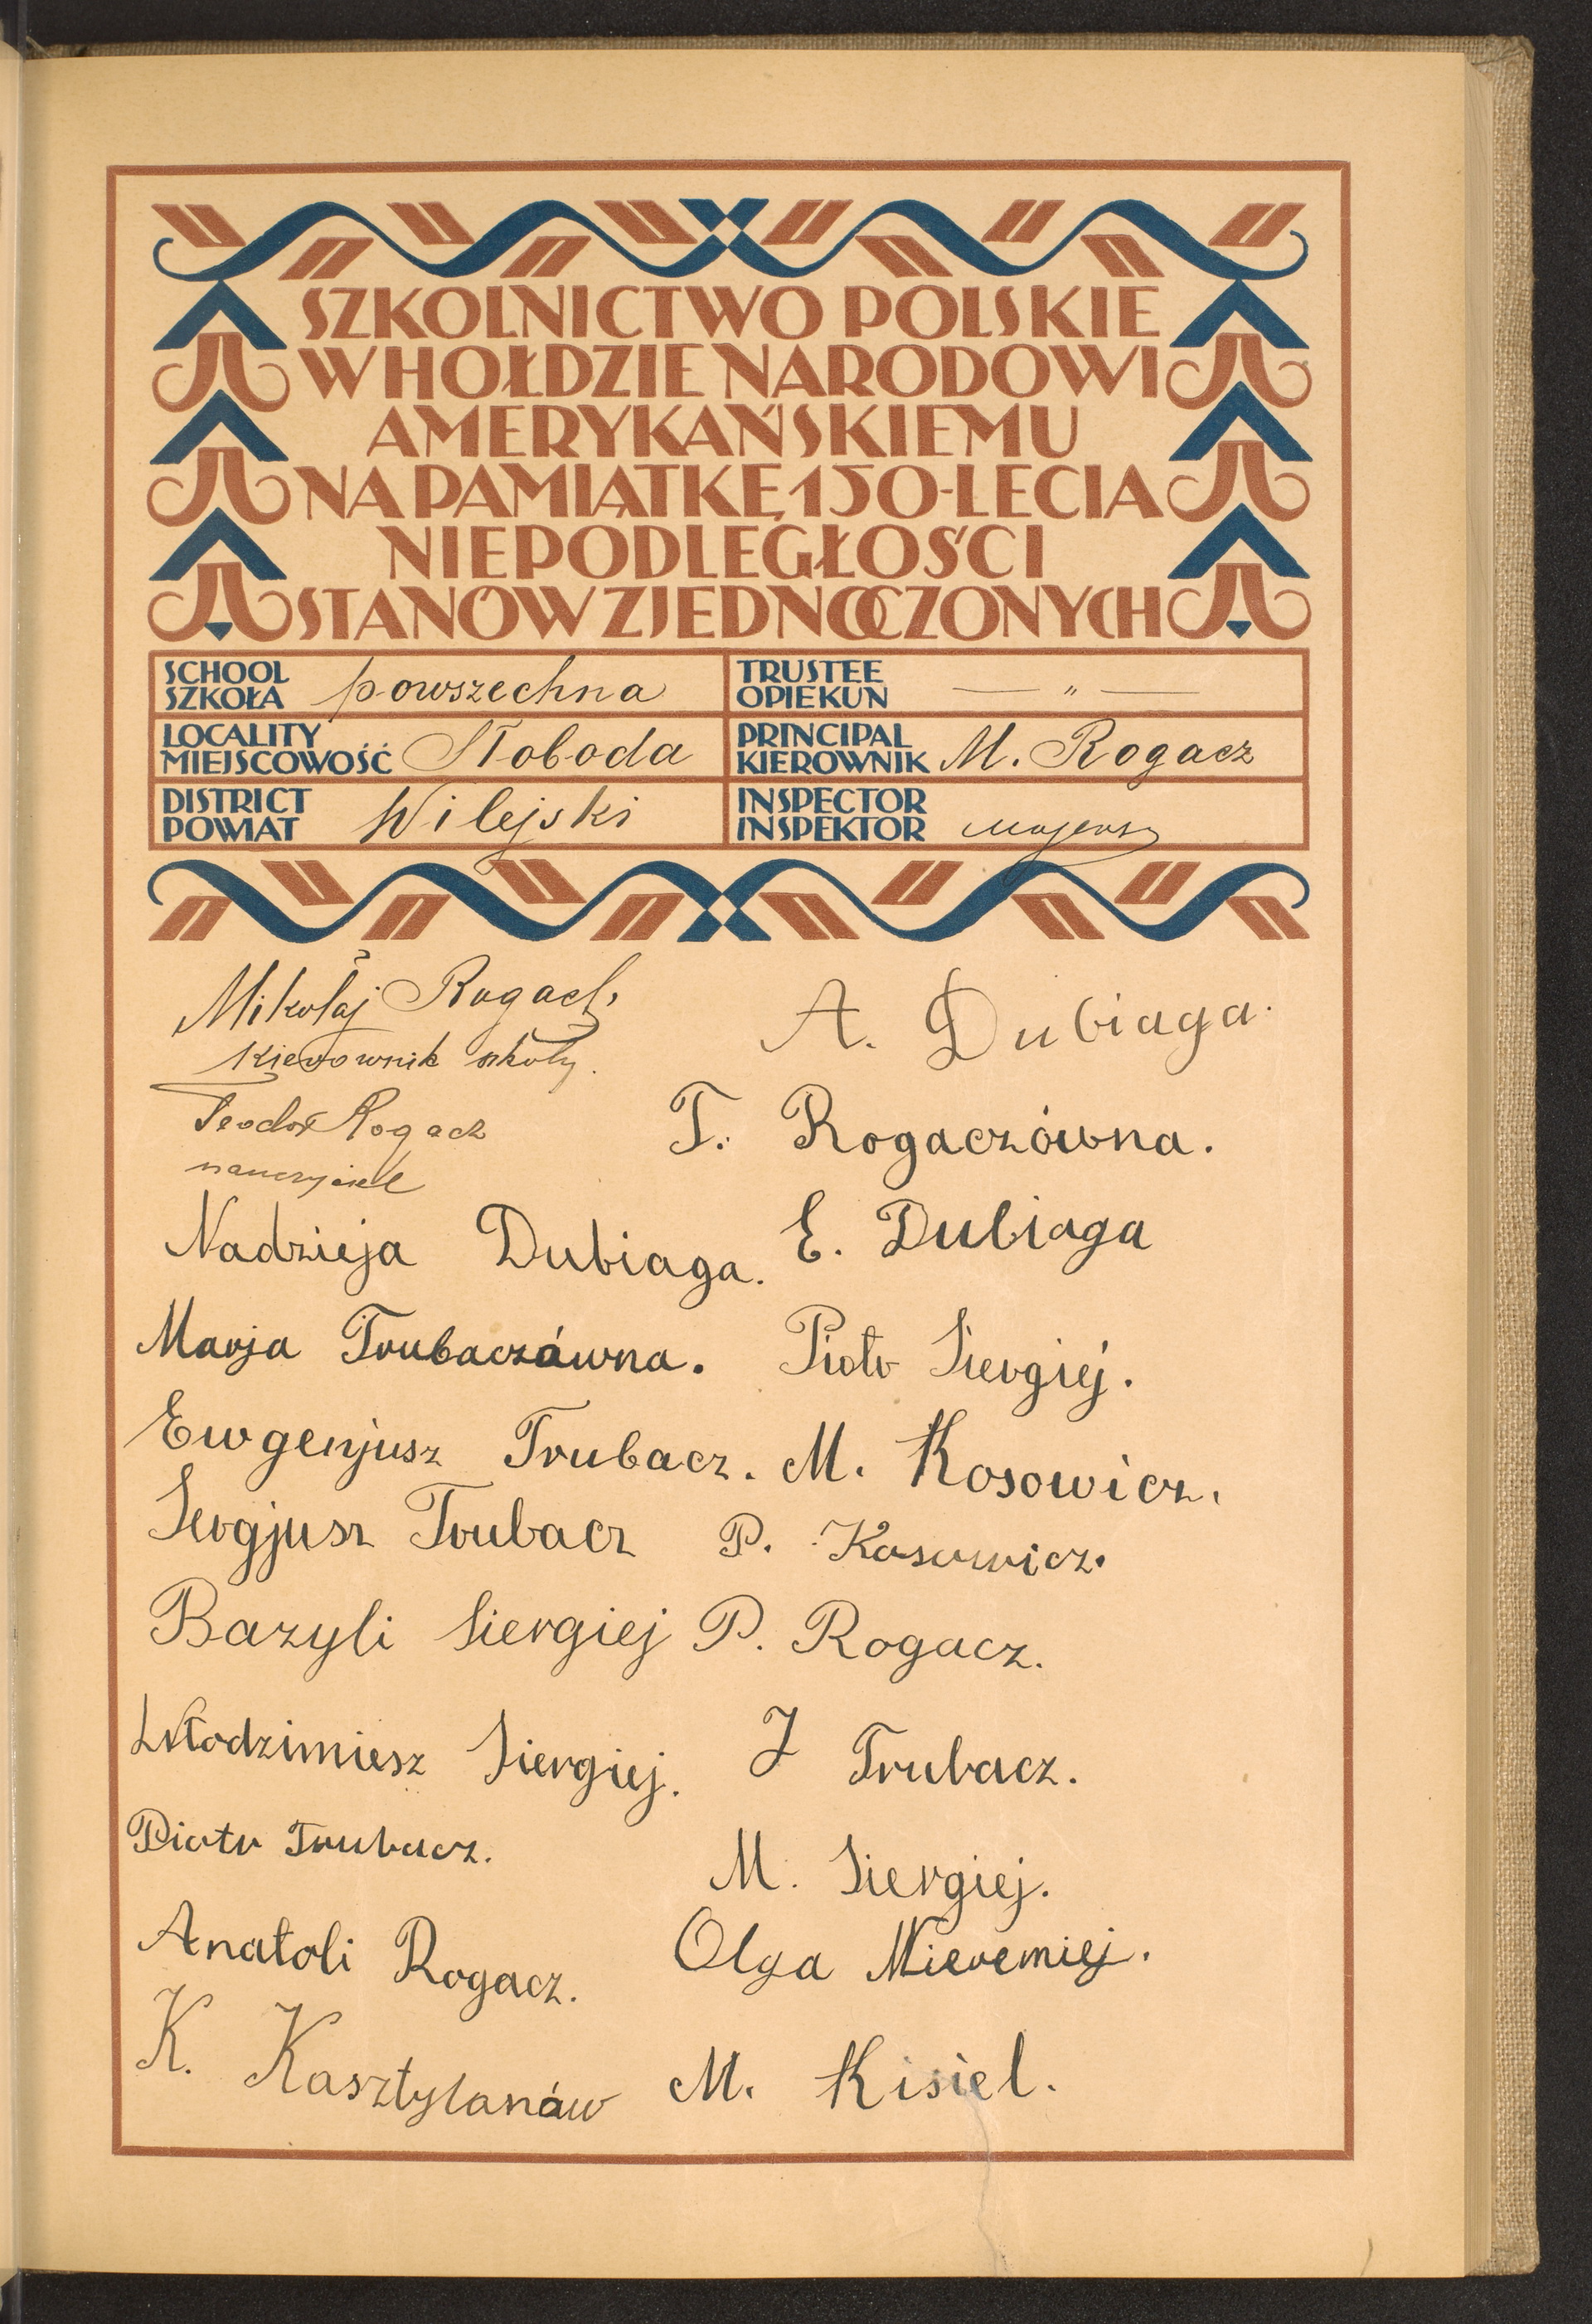 SZKOLNICTWO POLSKIE
W HOŁDZIE NARODOWI
AMERYKAŃSKIEMU
NA PAMIĄTKĘ 150-LECIA
NIEPODLEGŁOŚCI
STANÓW ZJEDNOCZONYCH
SCHOOL
SZKOŁA powszechna
TRUSTEE
OPIEKUN — " —
LOCALITY
MIEJSCOWOŚĆ Słoboda
PRINCIPAL
KIEROWNIK M. Rogacz
DISTRICT
POWIAT Wilejski
INSPECTOR
INSPEKTOR
Mikołaj Rogacz
Kierownik szkoły.
Teodor Rogacz
nauczyciel
Nadzieja Dubiaga.
Marja Trubaczówna.
Ewgenjusz Trubacz.
Sergjusz Trubacz
Bazyli Siergiej
Włodzimiesz Siergiej.
Piotr Trubacz.
Anatoli Rogacz.
K. Kasztylanów
A. Dubiaga.
T. Rogaczówna.
E. Dubiaga
Piotr Siergiej.
M. Kosowicz.
P. Kosowicz.
P. Rogacz.
J Trubacz.
M. Siergiej.
Olga Nieremiej.
M. Kisiel.